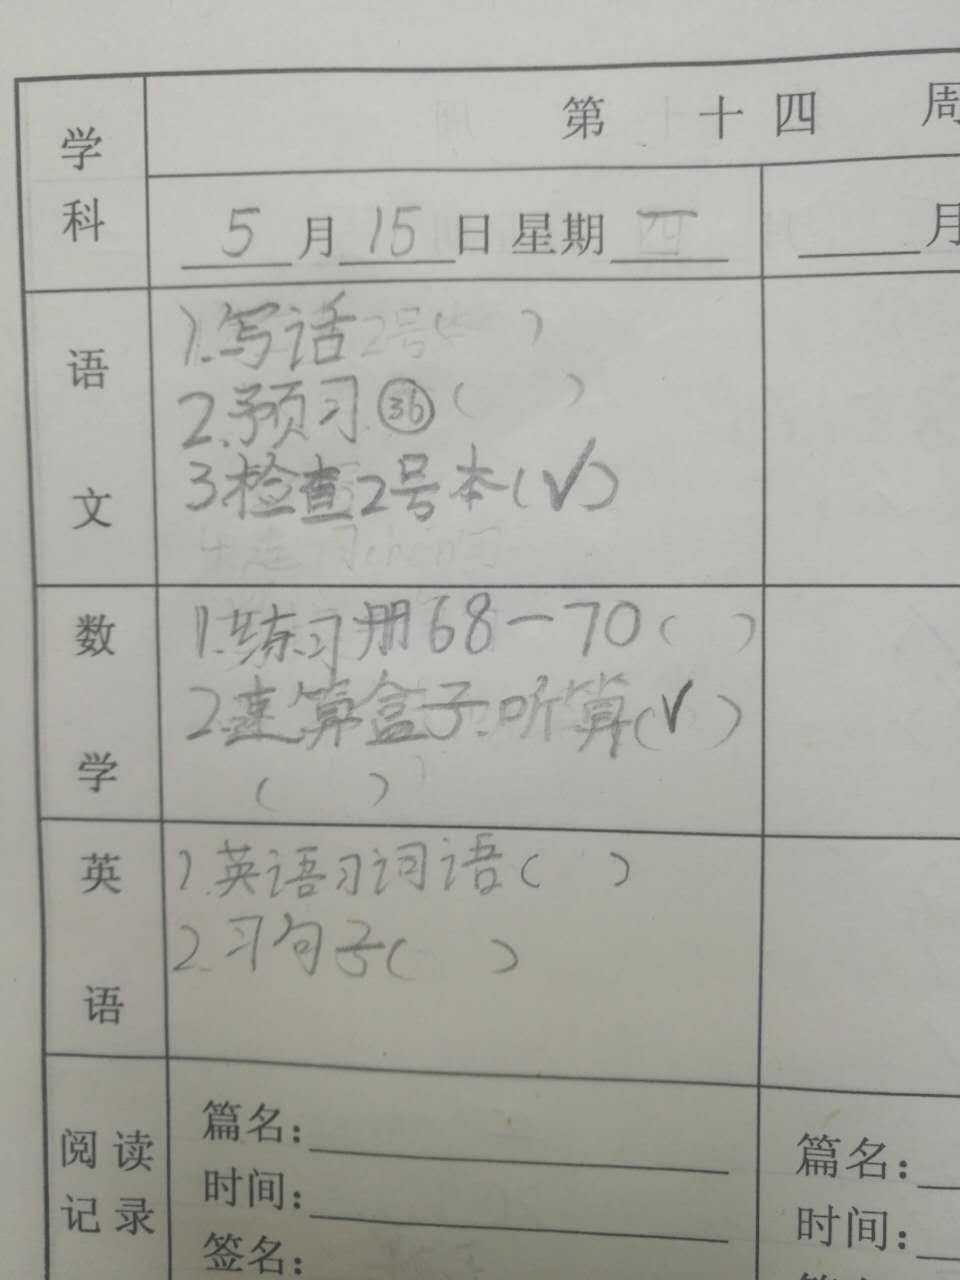 学科
第 十四 周
5月15日 星期四
月
语文
1.写话2号( )
2.预习㊱( )
3.检查2号本(√)
数学
1.练习册68-70( )
2.速算盒子.听算(√)
( )
英语
1.英语习词语( )
2.习句子( )
阅读记录
篇名:
时间:
签名:
篇名:
时间: